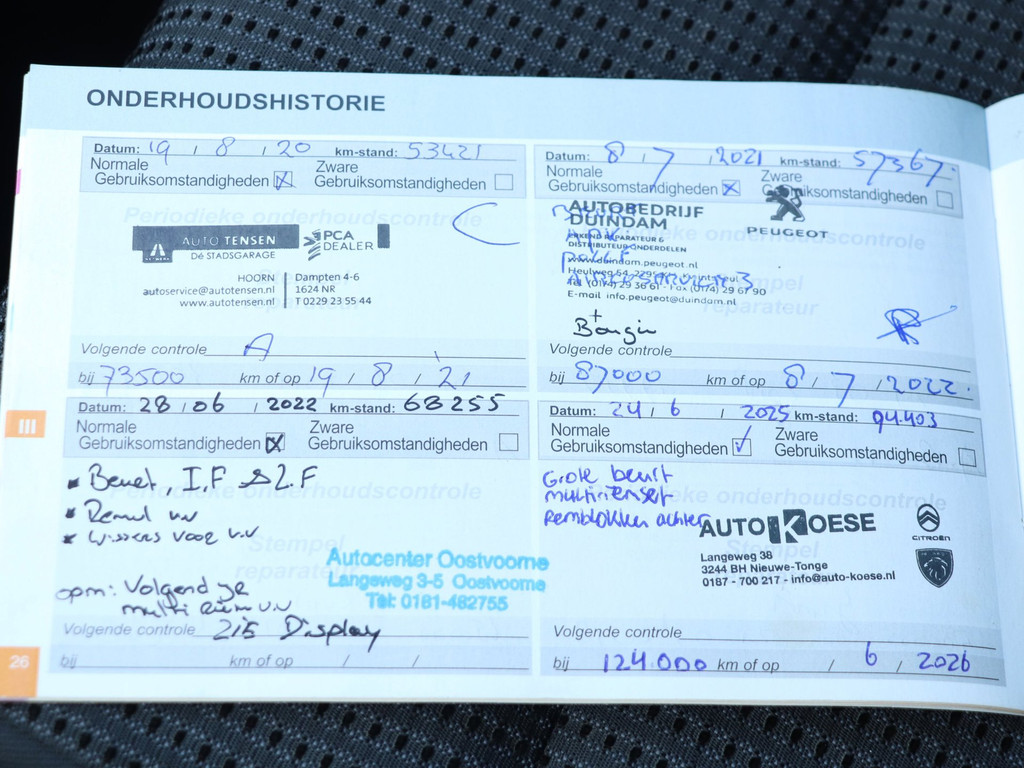 ONDERHOUDSHISTORIE
Datum: 19 / 8 / 20 km-stand: 53421
Normale Zware
Gebruiksomstandigheden Gebruiksomstandigheden
Periodieke onderhoudscontrole
AUTO TENSEN PCA
Dé STADSGARAGE DEALER
HOORN Dampten 4-6
autoservice@autotensen.nl 1624 NR
www.autotensen.nl T 0229 23 55 44
Volgende controle A
bij 73500 km of op 19 / 8 / 21
Datum: 8 / 7 / 2021 km-stand: 57367
Normale Zware
Gebruiksomstandigheden Gebruiksomstandigheden
AUTOBEDRIJF
DUINDAM PEUGEOT
ERKEND REPARATEUR &
DISTRIBUTEUR ONDERDELEN
onderhoudscontrole
www.duindam.peugeot.nl
Stempel
Tel (0174) 29 36 61 - Fax (0174) 29 67 90
E-mail info.peugeot@duindam.nl
reparateur
+
Bougie
Volgende controle
bij 87000 km of op 8 / 7 / 2022
Datum: 28 / 06 / 2022 km-stand: 68255
Normale Zware
Gebruiksomstandigheden Gebruiksomstandigheden
Periodieke onderhoudscontrole
Wissers voor v.v
Stempel
reparateur
Autocenter Oostvoorne
Langeweg 3-5 Oostvoorne
Tel: 0181-482755
opm: Volgende
multi riem v.v
Volgende controle zie Display
bij km of op / /
Datum: 24 / 6 / 2025 km-stand: 94.403
Normale Zware
Gebruiksomstandigheden Gebruiksomstandigheden
Grote beurt
multiriemset
Remblokken achter
onderhoudscontrole
AUTO KOESE CITROËN
Langeweg 38
3244 BH Nieuwe-Tonge
0187 - 700 217 - info@auto-koese.nl
Volgende controle
bij 124.000 km of op / 6 / 2026
III
26